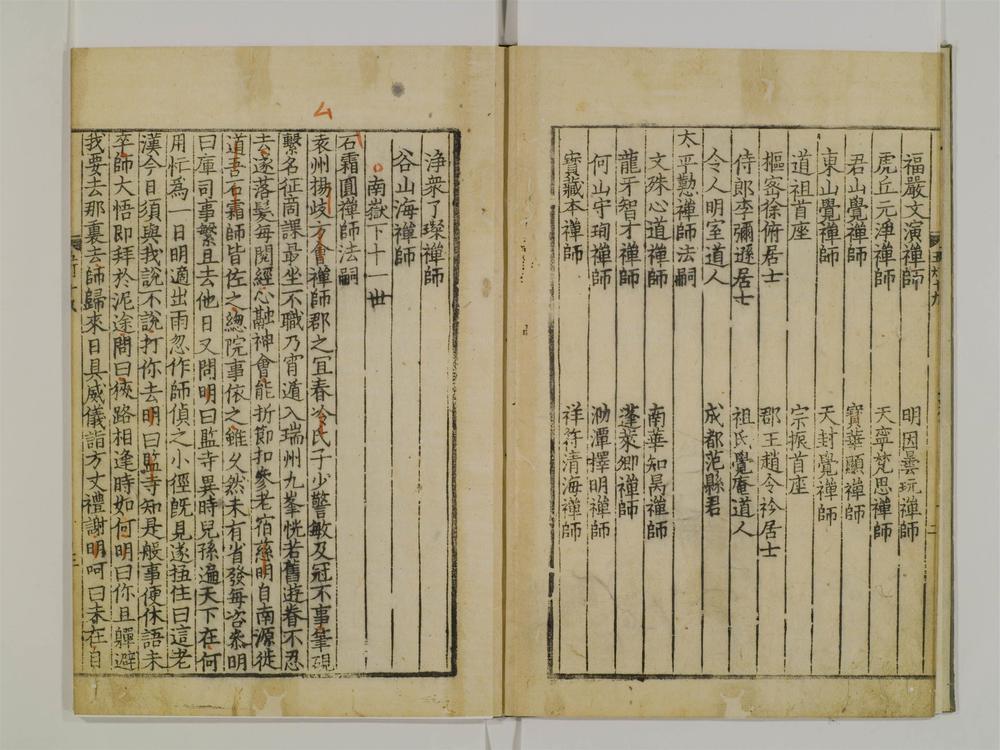 福嚴文演禪師　明因曇玩禪師
虎丘元淨禪師　天寧梵思禪師
君山覺禪師　寶華顯禪師
東山覺禪師　天封覺禪師
道祖首座　宗振首座
樞密徐俯居士　郡王趙令衿居士
侍郎李彌遜居士　祖氏覺庵道人
令人明室道人　成都范縣君
太平懃禪師法嗣
文殊心道禪師　南華知昺禪師
龍牙智才禪師　蓬萊卿禪師
何山守珣禪師　泐潭擇明禪師
寶藏本禪師　祥符清海禪師
淨衆了璨禪師
谷山海禪師
南嶽下十一世
石霜圓禪師法嗣
袁州楊歧方會禪師郡之宜春冷氏子少警敏及冠不事筆硯
繫名征商課最坐不職乃宵遁入瑞州九峯恍若舊遊眷不忍
去遂落髮每閱經心融神會能折節扣參老宿慈明自南源徙
道吾石霜師皆佐之總院事依之雖久然未有省發每咨參明
曰庫司事繁且去他日又問明曰監寺異時兒孫遍天下在何
用忙為一日明適出雨忽作師偵之小徑既見遂扭住曰這老
漢今日須與我說不說打你去明曰監寺知是般事便休語未
卒師大悟即拜於泥途問曰狹路相逢時如何明曰你且軃避
我要去那裏去師歸來日具威儀詣方丈禮謝明呵曰未在自